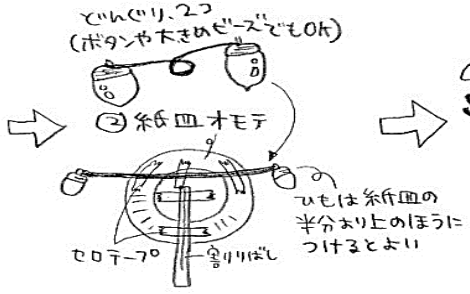 どんぐり、2コ
(ボタンや大きめビーズでもOK)
② 紙皿オモテ
ひもは紙皿の
半分より上のほうに
つけるとよい
セロテープ
割りばし